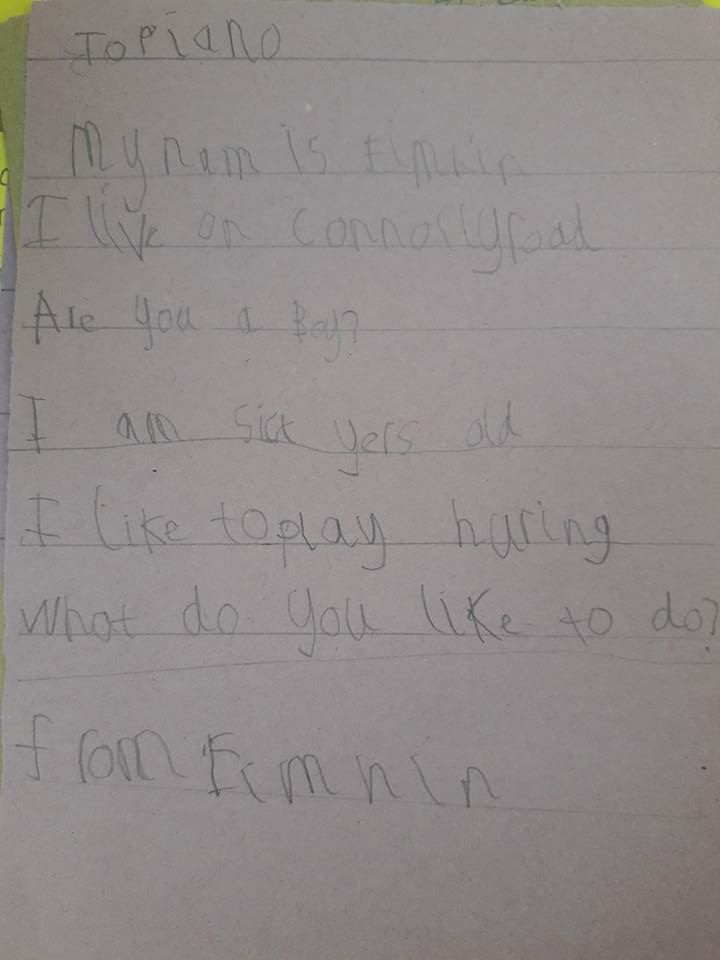 To PiaNO
My nam is Fimnin
I live on connollyroad
Are you a Boy?
I am sick yers old
I like toplay haring
What do you like to do?
from Fimnin